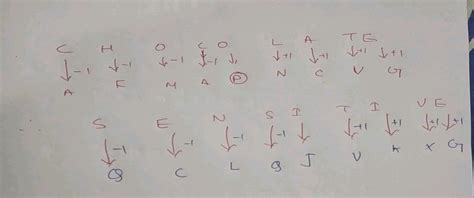 C H O C O L A T E
-1 -1 -1 -1 +1 +1 +1 +1
A F M A P N C V G
∴ S E N S I T I V E
-1 -1 -1 -1 +1 +1 +1 +1
Q C L Q J V K X G